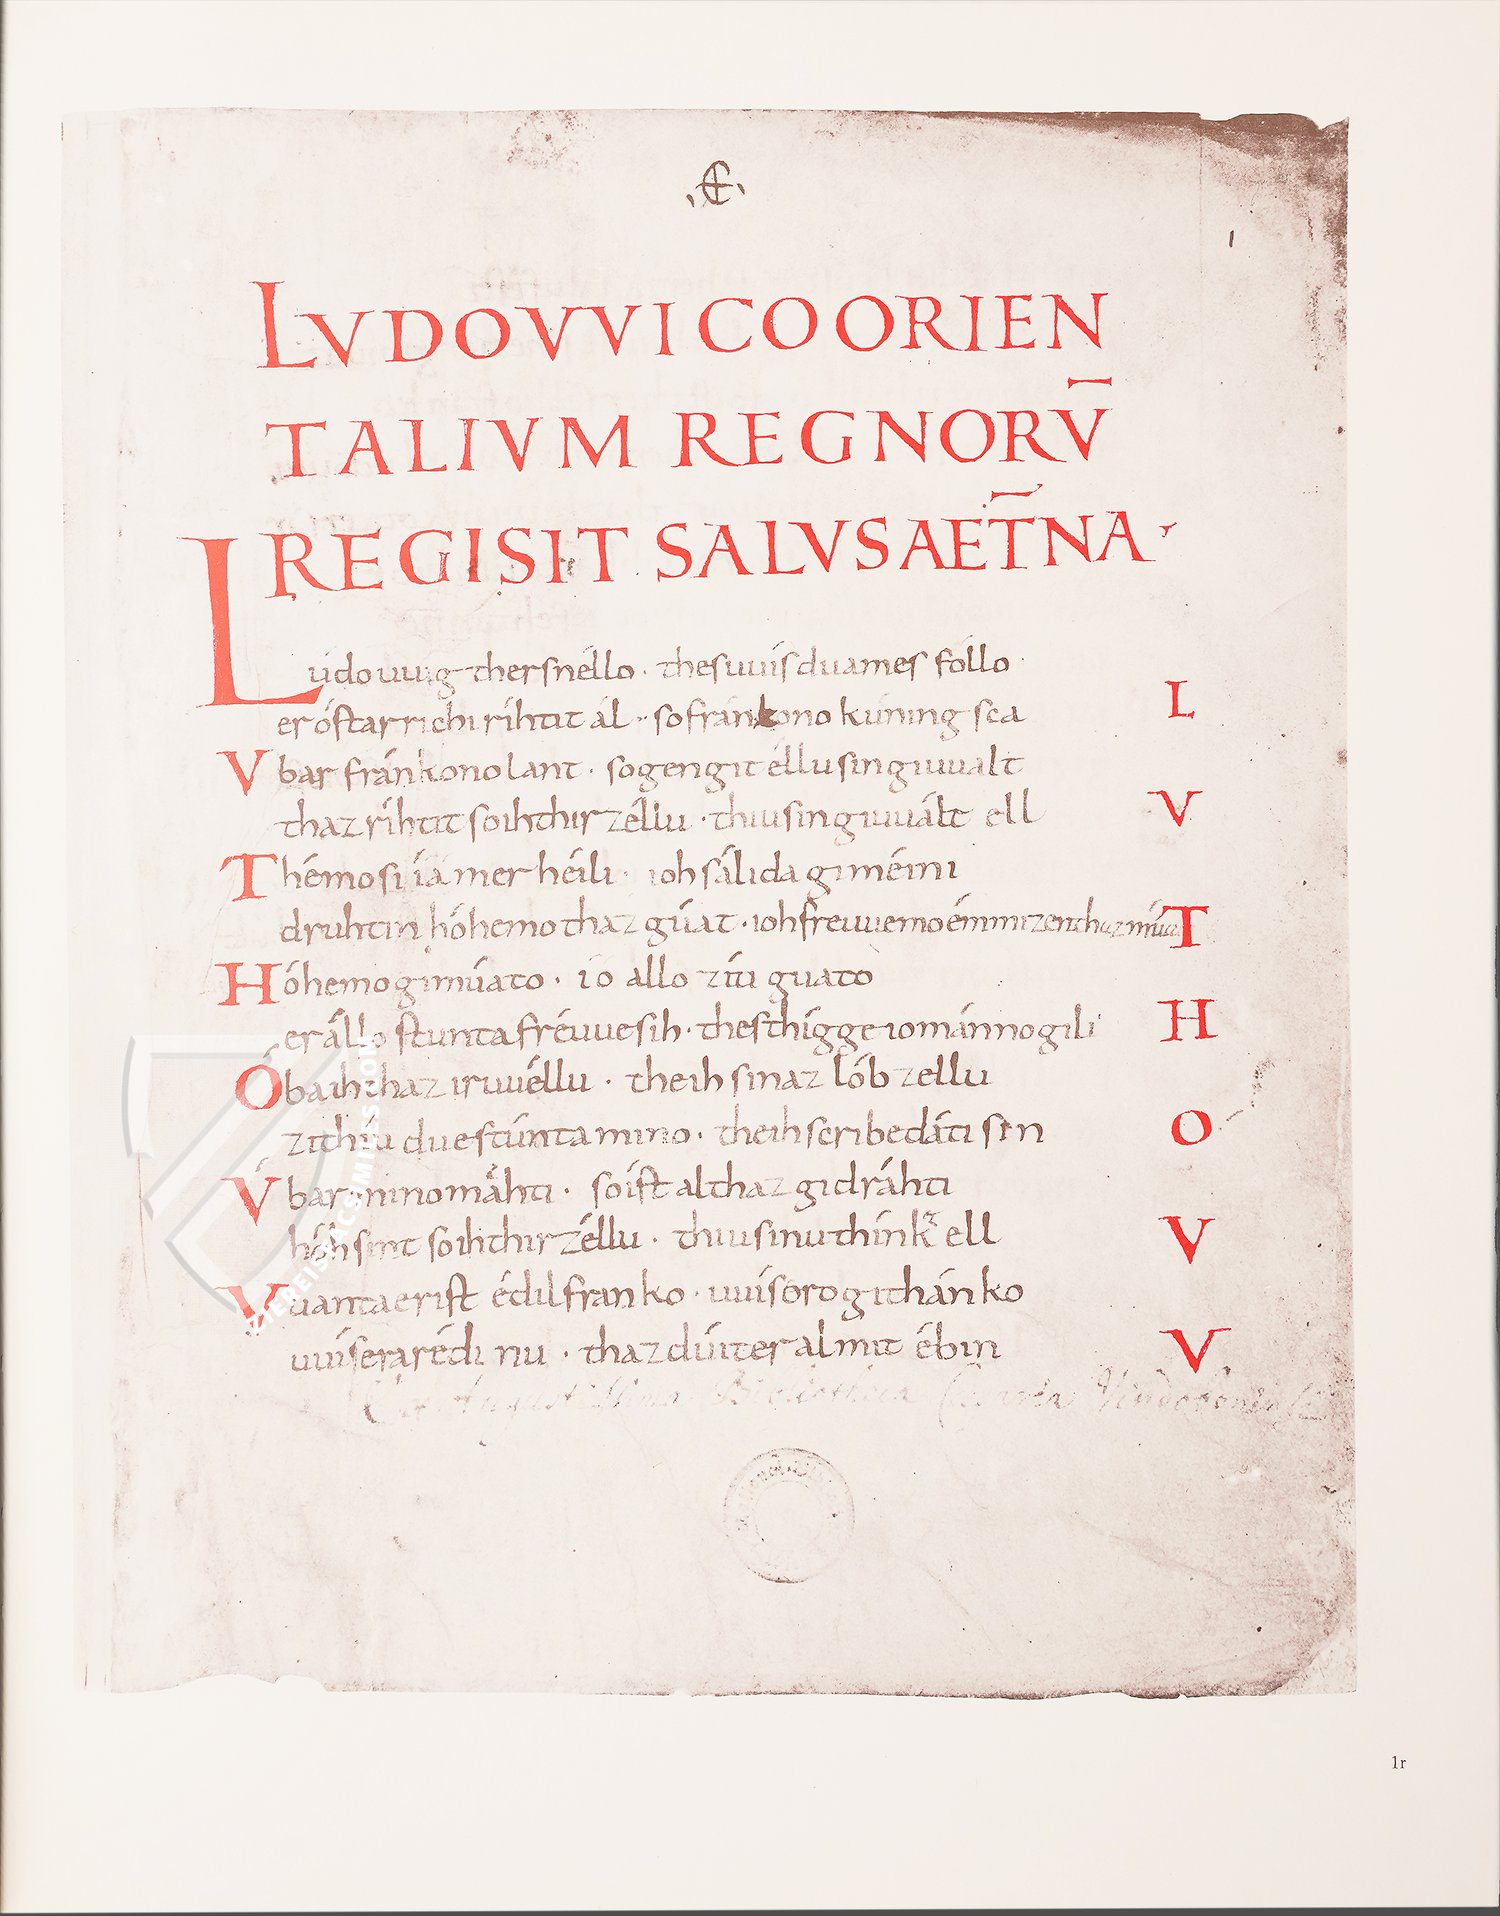 1
LVDOVVICO ORIEN
TALIVM REGNORV̄
REGI SIT SALVS AET̄NA·
Lúdouuig ther snéllo · thes uuísduames fóllo
er óstarrichi ríhtit ál · so fránkono kúning sca L
Vbar fránkono lant · so gengit éllu sin giuualt
thaz ríhtit so ih thir zéllu · thiu sin giuuált ell V
Thémo si íamer héili · ioh sálida giméini
druhtin hóhemo thaz gúat · ioh freuue mo émmizen thaz múat T
Hóhemo gimúato · io allo zíti guato
er állo stunta fréuue sih · thes thígge io mánnogilih H
Óba ih thaz iruuéllu · theih sinaz lób zellu
zi thíu due stúnta mino · theih scribe dáti sino O
Vbar mino máhti · so íst al thaz gidráhti
hóh sint so ih thir zéllu · thiu sinu thínk ell V
Vuanta er ist édil franko · uuísero githánko
uuísera rédinu · thaz dúit er al mit ébinu V
Ex Augustissima Bibliotheca Caesarea Vindobonensi
ZIEREIS FACSIMILES.COM
1r